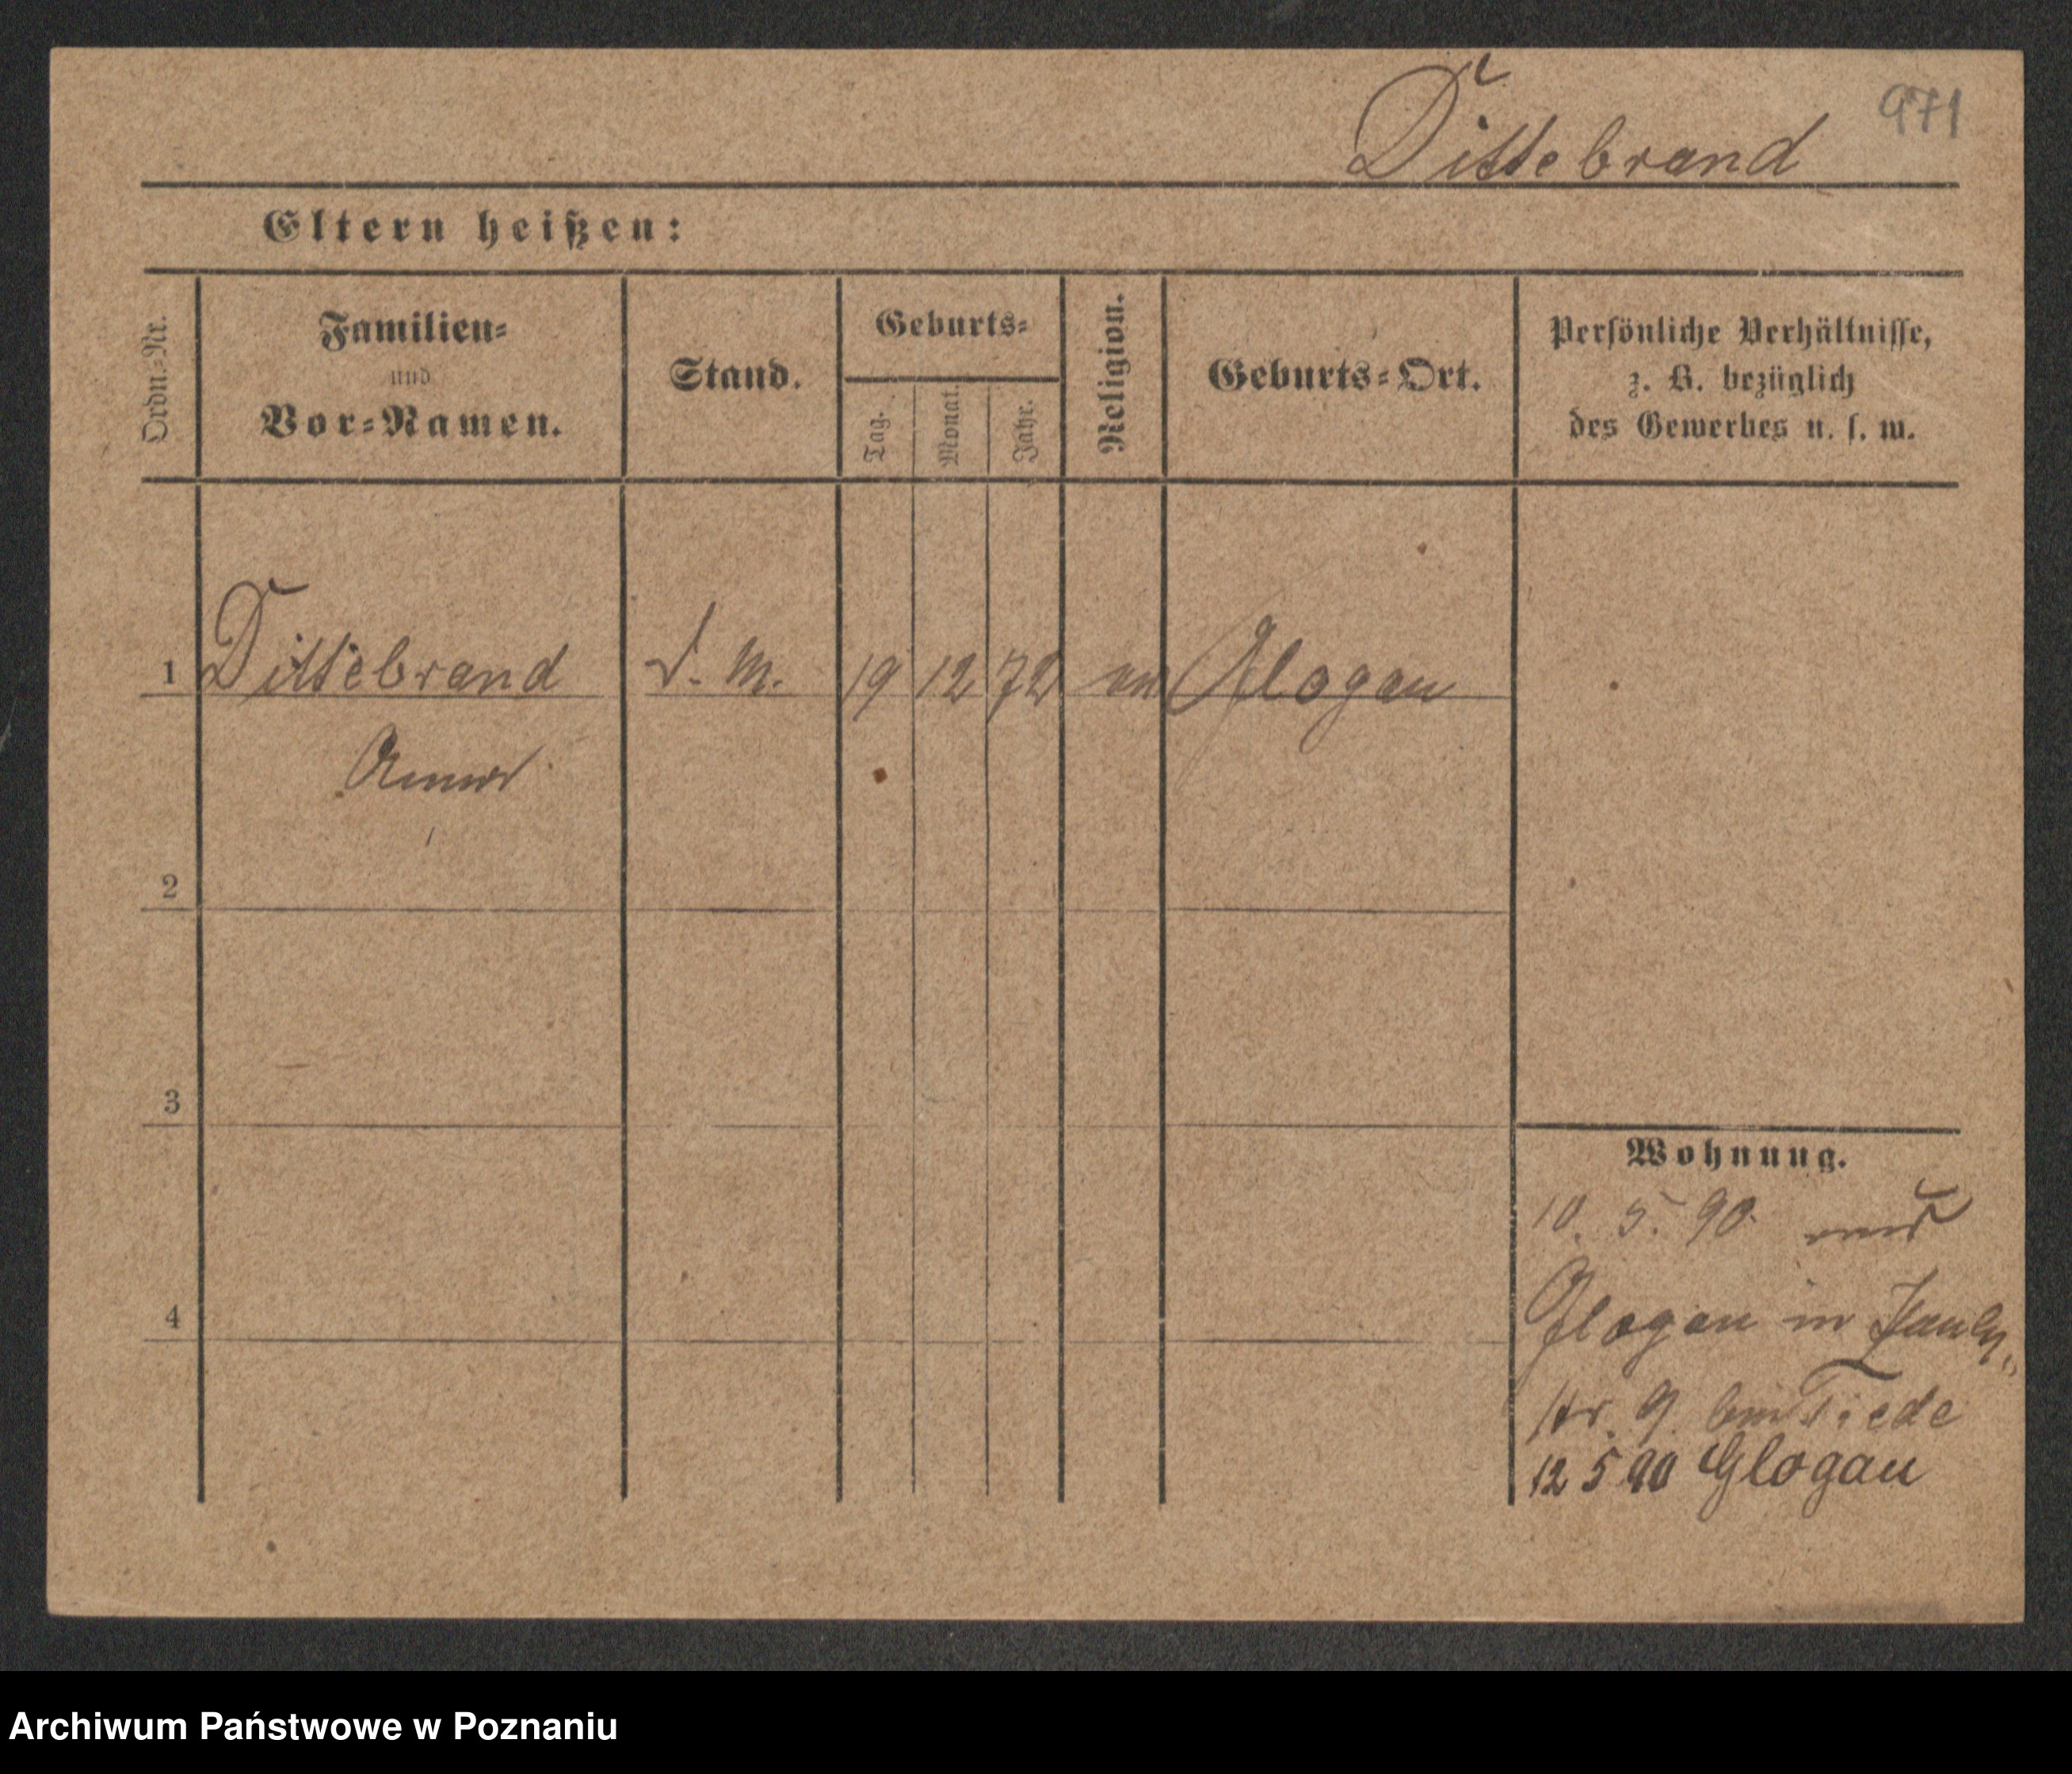 971
Dittebrand
Eltern heißen:
Ordn.=Nr.
Familien=
und
Vor=Namen.
Stand.
Geburts=
Tag.
Monat.
Jahr.
Religion.
Geburts=Ort.
Persönliche Verhältnisse,
z. B. bezüglich
des Gewerbes u. s. w.
1 Dittebrand d. M. 19 12 72 Glogau
Anna
2
3
4
Wohnung.
10. 5. 90
Glogau in
str. 9. bei Tiede
12 5 90 Glogau
Archiwum Państwowe w Poznaniu